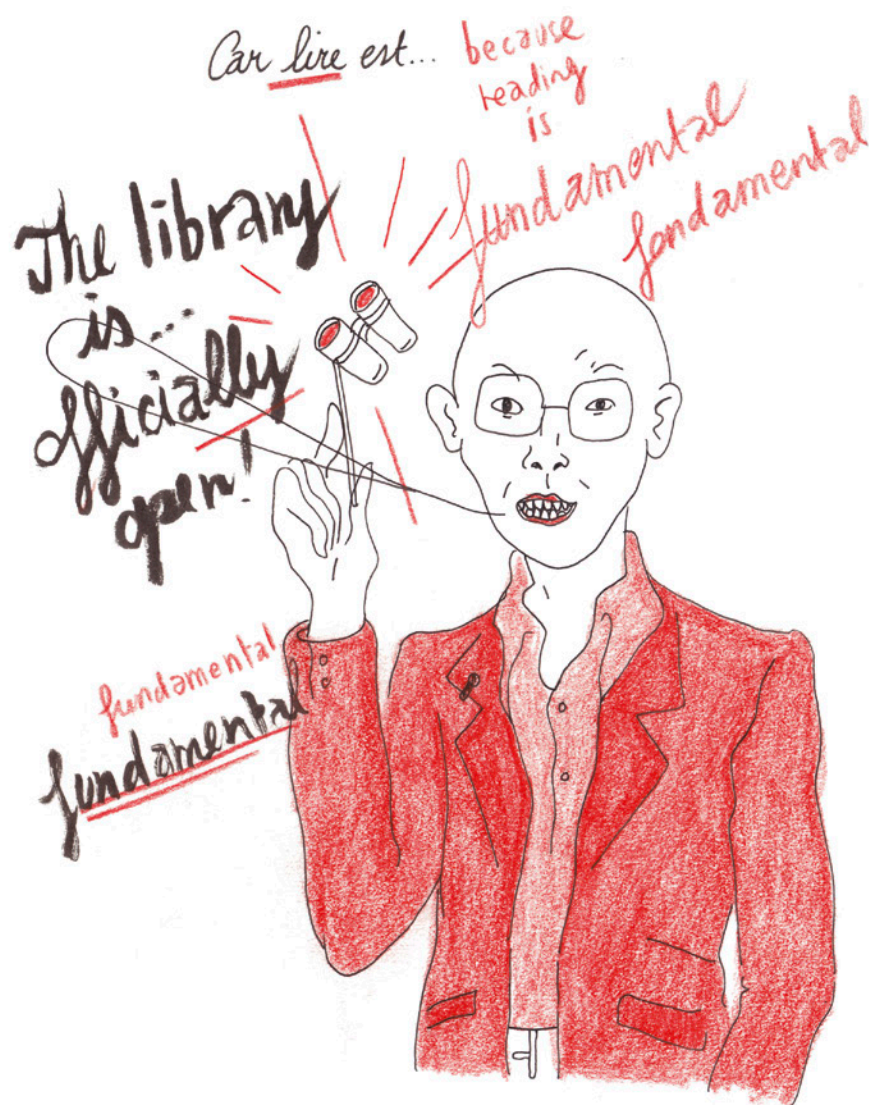 Car lire est...
because
reading
is
fundamental
fondamental
The library
is...
officially
open!
fundamental
fundamental